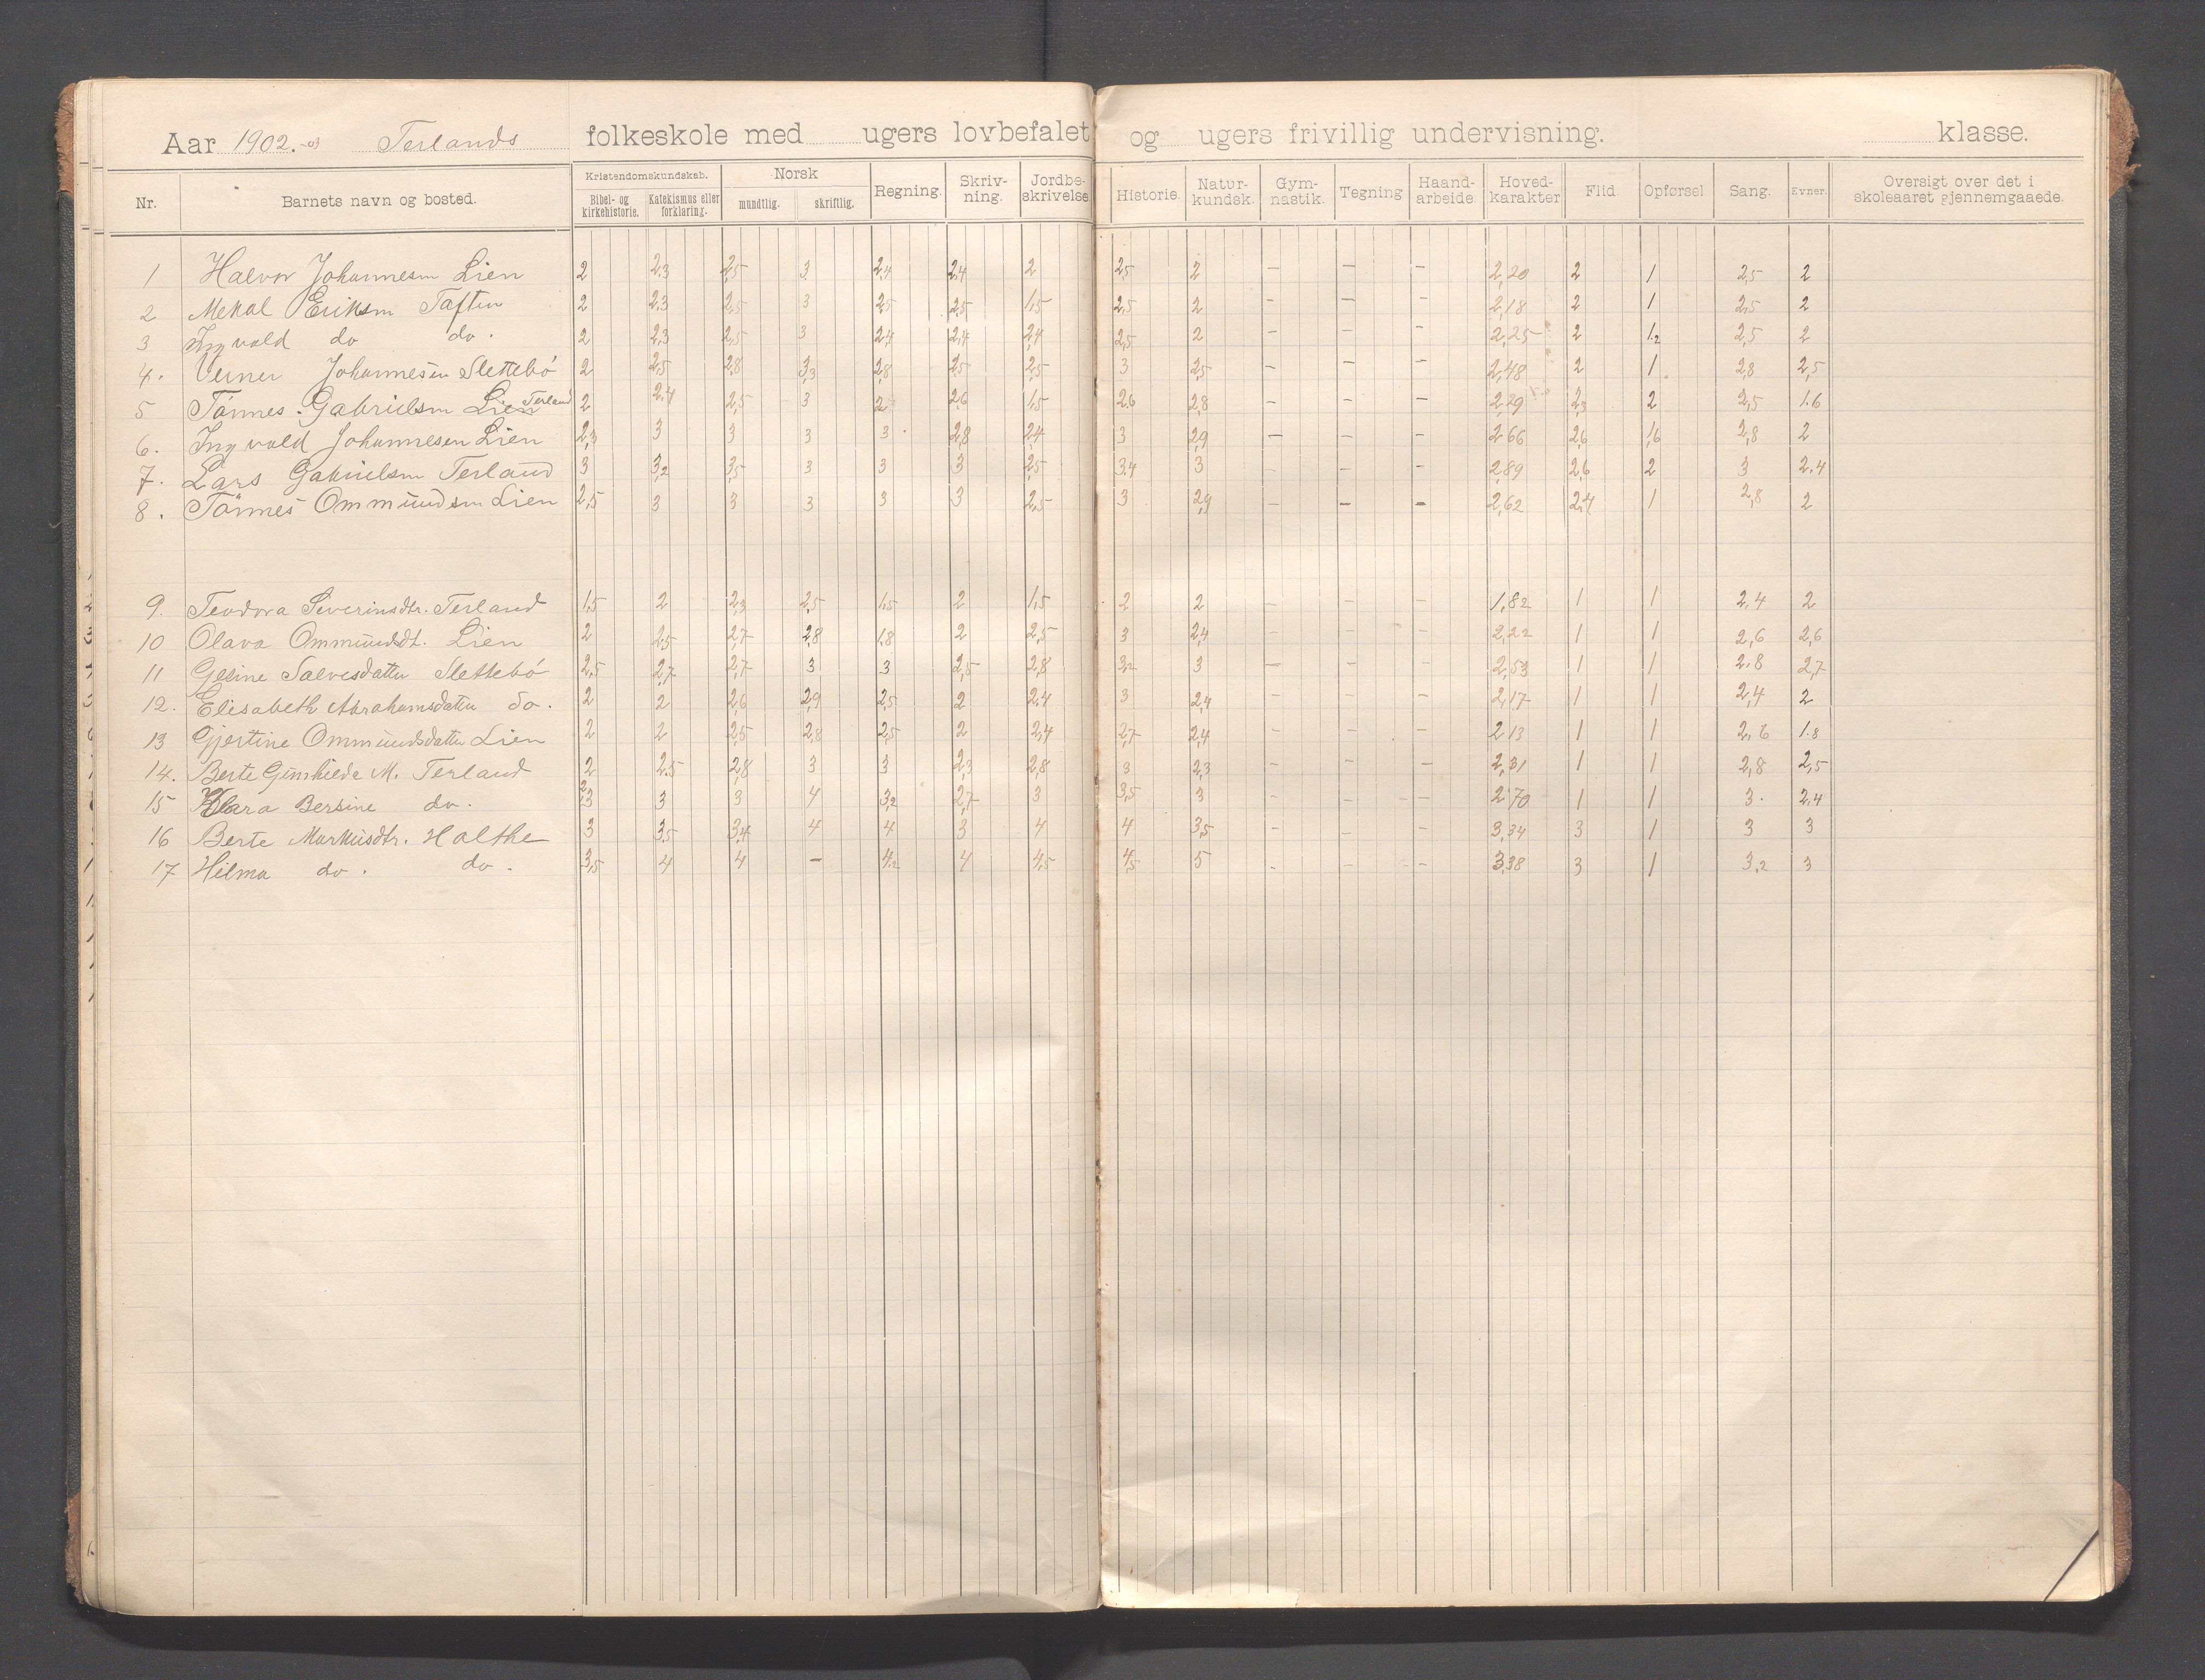 Aar 1902.-03 Terlands folkeskole med ugers lovbefalet og ugers frivillig undervisning. klasse.
Nr. Barnets navn og bosted. Kristendomskundskab. Bibel- og kirkehistorie. Katekismus eller forklaring. Norsk mundtlig. skriftlig. Regning. Skriv-ning. Jordbe-skrivelse Historie. Natur-kundsk. Gym-nastik. Tegning Haand-arbeide. Hoved-karakter Flid Opførsel Sang. Evner. Oversigt over det i skoleaaret gjennemgaaede.
1 Halvor Johannesen Lien 2 2,3 2,5 3 2,4 2,4 2 2,5 2 – – – 2,20 2 1 2,5 2
2 Mekal Eriksen 2 2,3 2,5 3 2,5 2,5 1,5 2,5 2 – – – 2,18 2 1 2,5 2
3 Ingvald do do. 2 2,3 2,5 3 2,4 2,4 2,4 2,5 2 – – – 2,25 2 1,2 2,5 2
4. Verner Johannesen Slettebö 2 2,5 2,8 3,3 2,8 2,5 2,5 3 2,5 – – – 2,48 2 1 2,8 2,5
5 Tönnes Gabrielsen Lien Terland 2 2,4 2,5 3 2 2,6 1,5 2,6 2,8 – – – 2,29 2,3 2 2,5 1.6
6. Ingvald Johannesen Lien 2,3 3 3 3 3 2,8 2,4 3 2,9 – – – 2,66 2,6 1,6 2,8 2
7. Lars Gabrielsen Terland 3 3,2 3,5 3 3 3 2,5 3.4 3 – – – 2,89 2,6 2 3 2.4
8. Tönnes Ommundsen Lien 2,5 3 3 3 3 3 2,5 3 2,9 – – – 2,62 2,4 1 2,8 2
9. Teodora Severinsdtr. Terland 1,5 2 2,3 2,5 1,5 2 1,5 2 2 – – – 1,82 1 1 2,4 2
10 Olava Ommundsdt. Lien 2 2,5 2,7 2,8 1,8 2 2,5 3 2,4 – – – 2,22 1 1 2,6 2,6
11 Gesine Salvesdatter Slettebö 2,5 2,7 2,7 3 3 2,5 2,8 3,2 3 – – – 2,53 1 1 2.8 2,7
12. Elisabeth Abrahamsdatter do. 2 2 2,6 2,9 2,5 2 2.4 3 2,4 – – – 2,17 1 1 2,4 2
13 Gjertine Ommundsdatter Lien 2 2 2,5 2,8 2,5 2 2,4 2,7 2,4 – – – 2 13 1 1 2,6 1.8
14. Berte Gunhilde M. Terland 2 2.5 2,8 3 3 2,3 2,8 3 2,3 – – – 2,31 1 1 2,8 2,5
15 Klara Bersine do. 2,3 3 3 4 3,2 2,7 3 3,5 3 – – – 2 70 1 1 3. 2.4
16 Berte Markusdtr. Halthe 3 3,5 3,4 4 4 3 4 4 3,5 – – – 3,34 3 1 3 3
17 Hilma do. do. 3,5 4 4 – 4,2 4 4,5 4,5 5 – – – 3,38 3 1 3,2 3